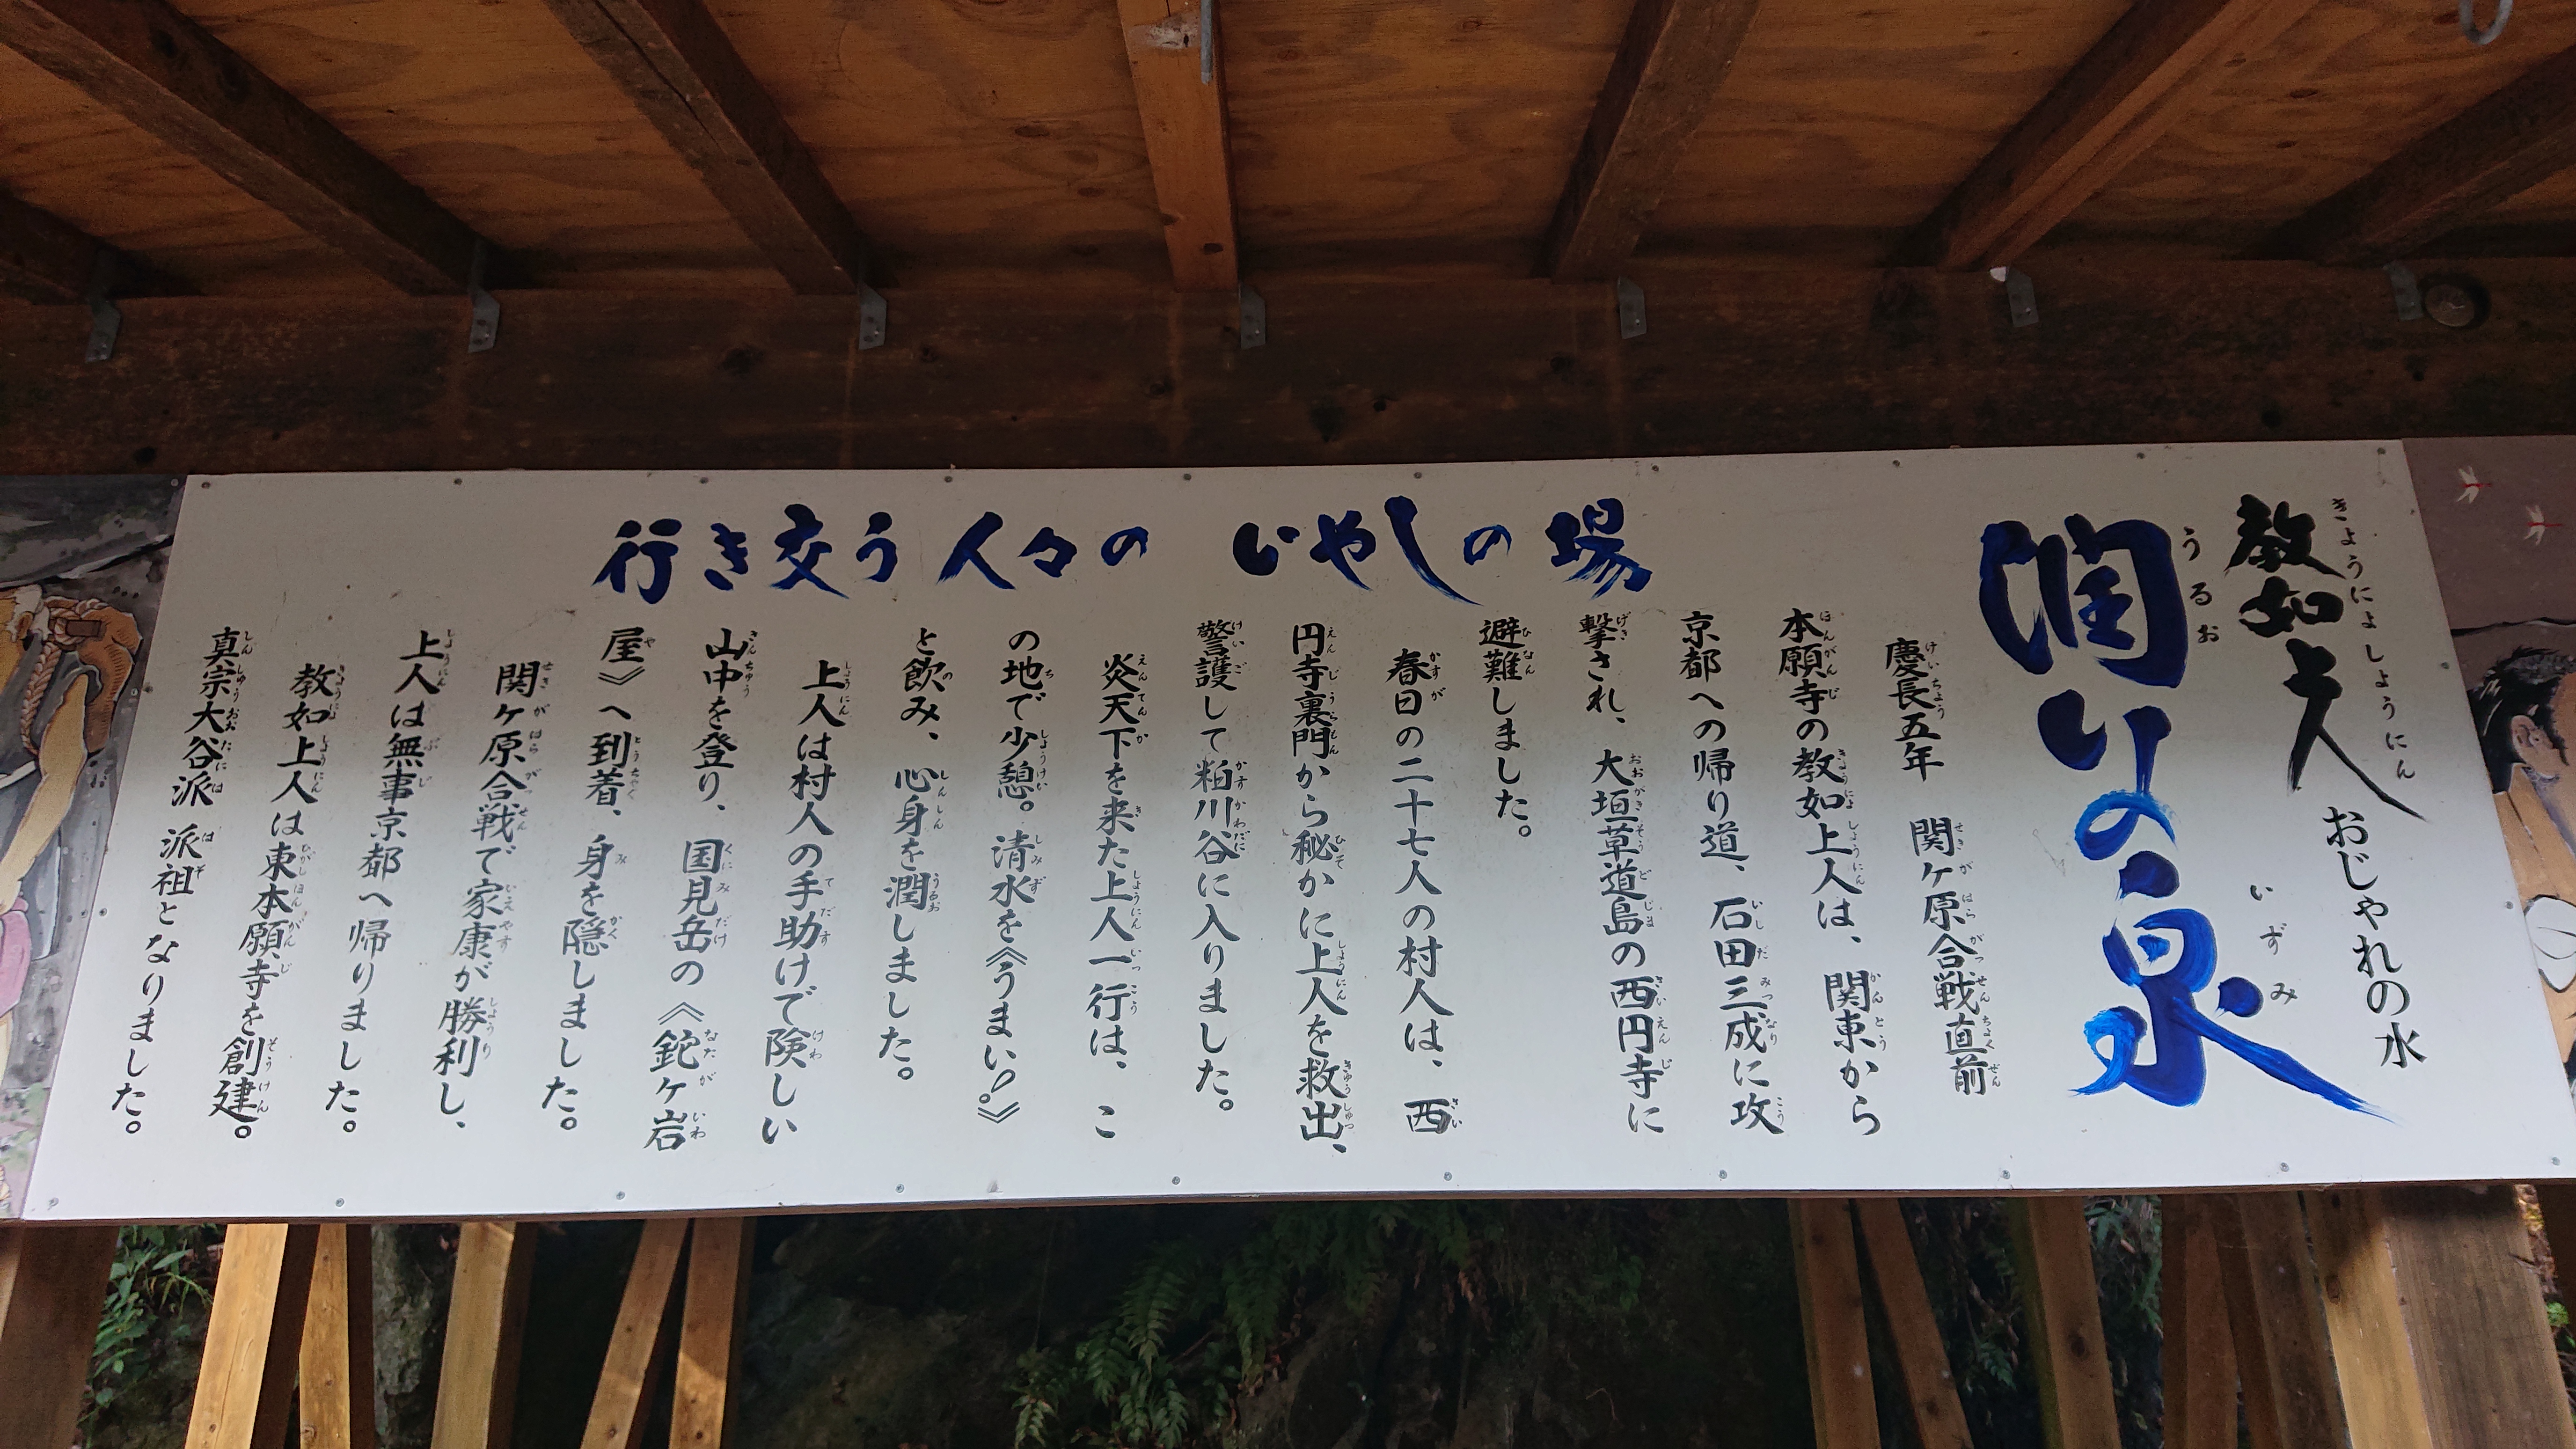 教如上人
きょうにょしょうにん
おじゃれの水
潤いの泉
うるお
いずみ
行き交う人々の いやしの場
慶長五年 関ヶ原合戦直前
本願寺の教如上人は、関東から
京都への帰り道、石田三成に攻
撃され、大垣草道島の西円寺に
避難しました。
春日の二十七人の村人は、西
円寺裏門から秘かに上人を救出、
警護して粕川谷に入りました。
炎天下を来た上人一行は、こ
の地で少憩。清水を《うまい!》
と飲み、心身を潤しました。
上人は村人の手助けで険しい
山中を登り、国見岳の《鉈ヶ岩
屋》へ到着、身を隠しました。
関ヶ原合戦で家康が勝利し、
上人は無事京都へ帰りました。
教如上人は東本願寺を創建。
真宗大谷派 派祖となりました。